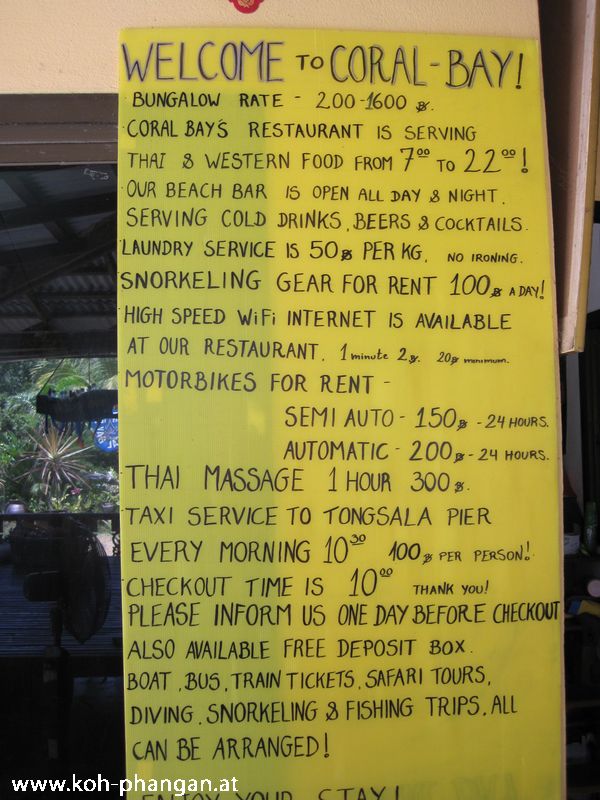 WELCOME TO CORAL-BAY!
BUNGALOW RATE - 200-1600 ฿.
CORAL BAY'S RESTAURANT IS SERVING
THAI & WESTERN FOOD FROM 7⁰⁰ TO 22⁰⁰!
OUR BEACH BAR IS OPEN ALL DAY & NIGHT.
SERVING COLD DRINKS, BEERS & COCKTAILS.
LAUNDRY SERVICE IS 50฿ PER KG. NO IRONING.
SNORKELING GEAR FOR RENT 100฿ A DAY!
HIGH SPEED WiFi INTERNET IS AVAILABLE
AT OUR RESTAURANT. 1 minute 2฿. 20฿ minimum.
MOTORBIKES FOR RENT -
SEMI AUTO - 150฿ - 24 HOURS.
AUTOMATIC - 200฿ - 24 HOURS.
THAI MASSAGE 1 HOUR 300฿.
TAXI SERVICE TO TONGSALA PIER
EVERY MORNING 10³⁰ 100฿ PER PERSON!
CHECKOUT TIME IS 10⁰⁰ THANK YOU!
PLEASE INFORM US ONE DAY BEFORE CHECKOUT
ALSO AVAILABLE FREE DEPOSIT BOX.
BOAT, BUS, TRAIN TICKETS, SAFARI TOURS,
DIVING, SNORKELING & FISHING TRIPS. ALL
CAN BE ARRANGED!
ENJOY YOUR STAY!
www.koh-phangan.at